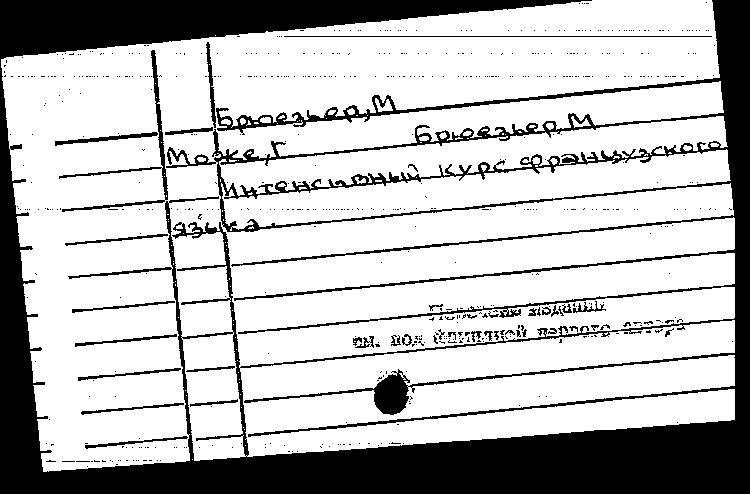 Брюезьер, М
Може, Г Брюезьер, М
Интенсивный курс французского
языка.
Перечень изданий
см. под фамилией первого автора